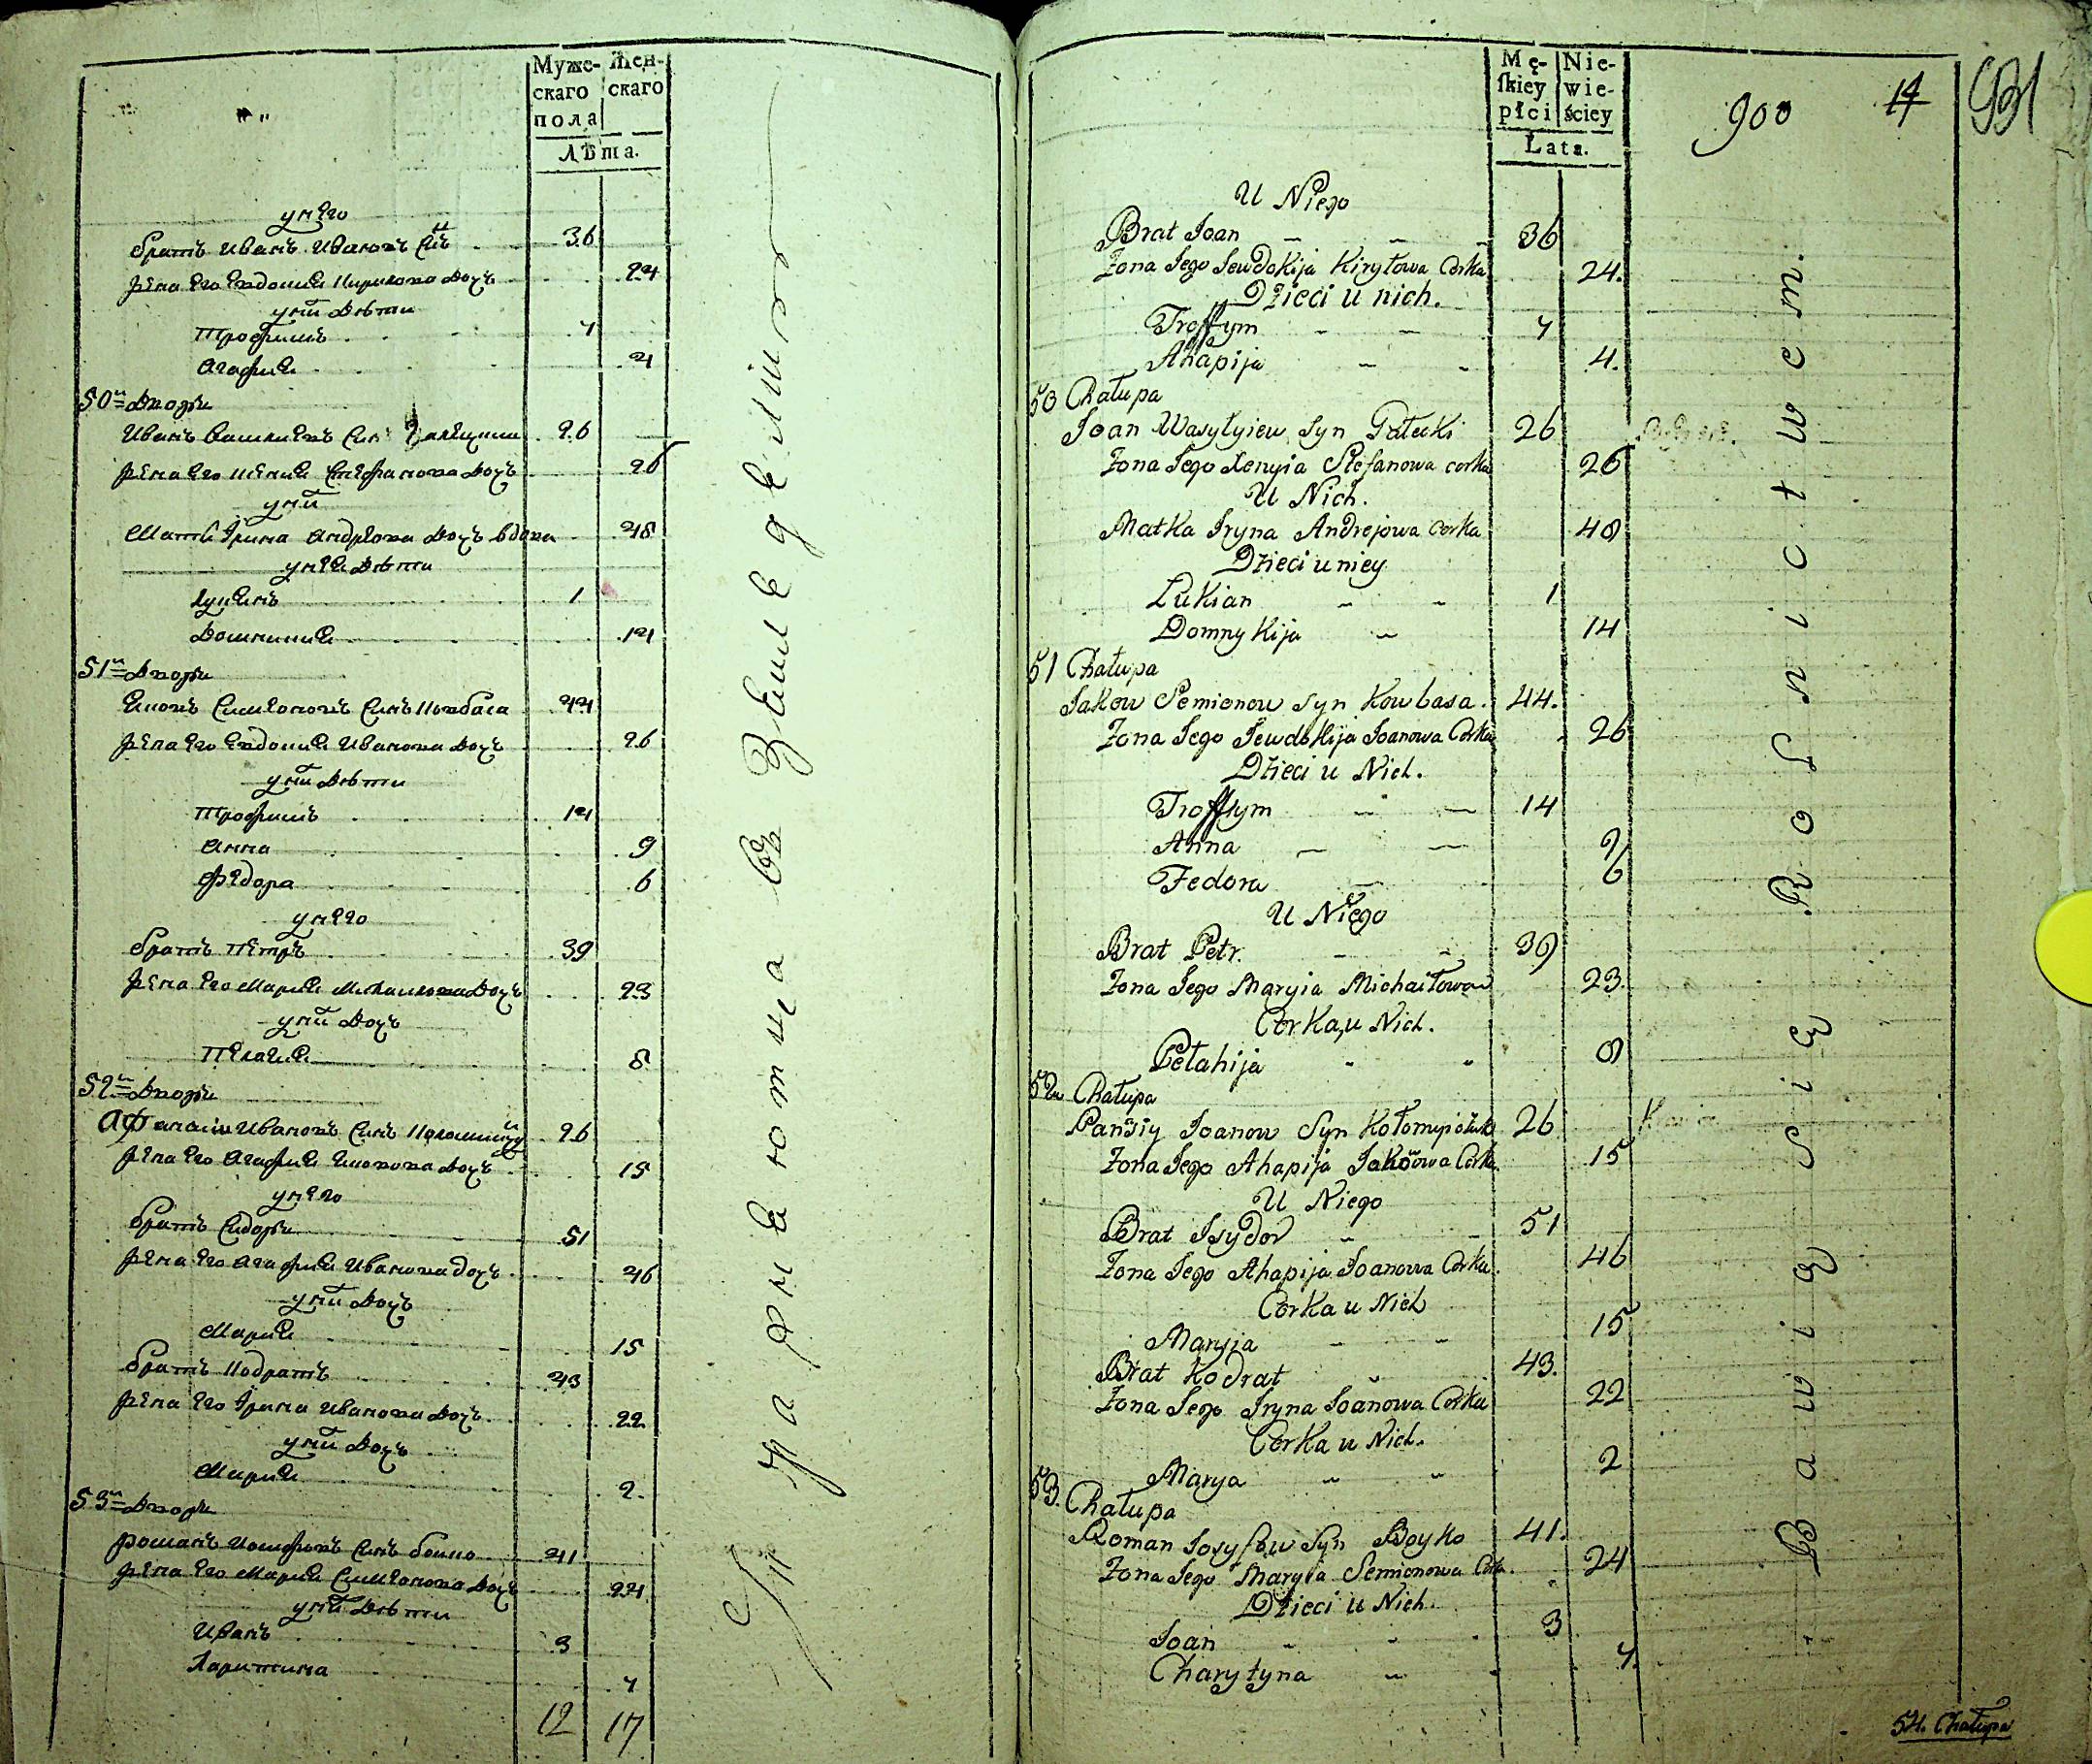 Муже-
скаго
пола
Жен-
скаго
Лѣта.
у него
братъ Иванъ Ивановъ Снъ 36
жена Его Евдокия Кирилова Дочь 24
у них Дѣти
Трофимъ 7
Агафия 4
50й Дворъ
Иванъ Василиевъ Снъ 26
жена Его Ксения Стефанова Дочь 26
у них
Мать Ирина Андреева Дочь вдова 48
у нея Дѣти
Лукиянъ 1
Домникия 14
51й Дворъ
Яковъ Симеоновъ Снъ Ковбаса 44
жена Его Евдокия Иванова Дочь 26
у них Дѣти
Трофимъ 14
Анна 9
Федора 6
у него
братъ Петръ 39
жена Его Мария Михаилова Дочь 23
у них Дочь
Пелагия 8
52й Дворъ
Афанасий Ивановъ Снъ 26
жена Его Агафия Яковова Дочь 15
у него
братъ Сидоръ 51
жена Его Агафия Иванова дочь 46
у них Дочь
Мария 15
братъ Кодратъ 43
жена Его Ирина Иванова Дочь 22
у них Дочь
Мария 2
53й Дворъ
Романъ Иосифовъ Снъ Бойко 41
жена Его Мария Симеонова Дочь 24
у них Дѣти
Иванъ 3
Харитина 7
12 17
Упражняются въ Земледелии
Mę-
ſkiey
płci
Nie-
wie-
ściey
Lata.
900
14
931
U Niego
Brat Joan 36
Żona Jego Jewdokija Kiryłowa Corka 24.
Dzieci u nich.
Troffym 7
Ahapija 4.
50 Chałupa
Joan Wasylyiew Syn Gałecki 26
Żona Jego Xenyia Stefanowa corka 26
U Nich.
Matka Iryna Andrejowa Corka 48
Dzieci u niey
Lukian 1
Domnykija 14
51 Chałupa
Jakow Semienow Syn Kowbasa. 44.
Żona Jego Jewdokija Joanowa Corka 26
Dzieci u Nich.
Troffym 14
Anna 9
Fedora 6
U Niego
Brat Petr. 39
Żona Jego Maryia Michaiłowa 23.
Corka, u Nich.
Pełahija 8
52 Chałupa
Panśiy Joanow Syn 26
Żona Jego Ahapija Jakowowa Corka. 15
U Niego
Brat Isydor 51
Żona Jego Ahapija Joanowa Corka. 46
Corka u Nich
Maryja 15
Brat Kodrat 43.
Żona Jego Iryna Joanowa Corka 22
Corka u Nich.
Marya 2
53. Chałupa
Roman Josyfow Syn Boyko 41.
Żona Jego Maryia Semionowa Corka. 24
Dzieci u Nich.
Joan 3
Charytyna 7.
Bawią Się Rolnictwem.
54. Chałupa